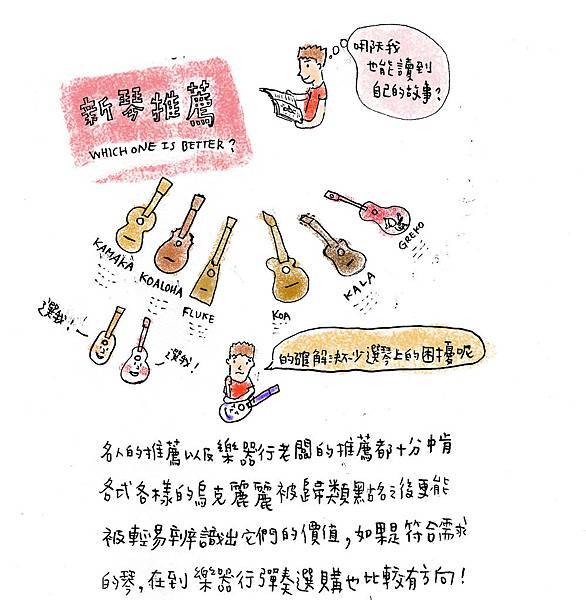 明陝我
也能讀到
自己的故事?
新琴推薦
WHICH ONE IS BETTER?
KAMAKA
KOALOHA
FLUKE
KOA
KALA
GREKO
選我!
選我!
的確解決不少選琴上的困擾呢
名人的推薦以及樂器行老闆的推薦都十分中肯
各式各樣的烏克麗麗被歸類點名之後更能
被輕易辨識出它們的價值,如果是符合需求
的琴,在到樂器行彈奏選購也比較有方向!